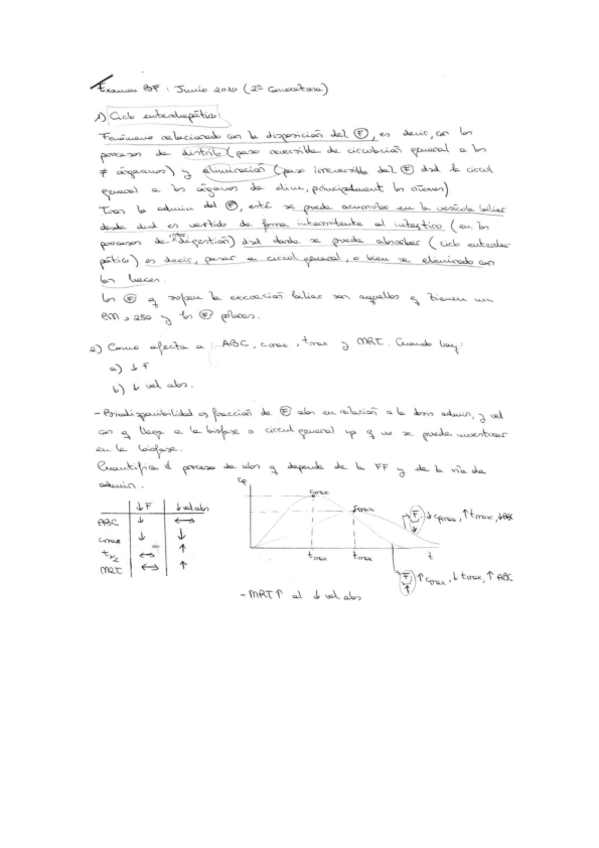 Examen BF: Junio 2010 (2ª Convocatoria)
1) Ciclo enterohepático:
Fenómeno relacionado con la disposición del Ⓕ, es decir, con los
procesos de distrib (paso reversible de circulación general a los
≠ órganos) y eliminación (paso irreversible del Ⓕ dsd la circul
general a los órganos de elim, principalment los riñones)
Tras la admin del Ⓕ, esté se puede acumular en la vesícula biliar
desde dnd es vertido de forma intermitente al intestino (en los
procesos de digestión) dsd donde se puede absorber (ciclo enterohe-
pático) es decir, pasar a circul general, o bien se eliminado con
las heces.
los Ⓕ q sufren la excreción biliar son aquellos q tienen un
PM > 250 y los Ⓕ polares.
2) Como afecta a: ABC, cmax, tmax y MRT. Cuando hay:
a) ↓ F
b) ↓ vel abs.
- Biodisponibilidad es fracción de Ⓕ abs en relación a la dosis admin, y vel
con q llega a la biofase o circul general ya q no se puede muestrear
en la biofase.
Cuantifica el proceso de abs q depende de la FF y de la vía de
admin.
↓F ↓vel abs
ABC ↓ ↔
cmax ↓ ↓
t1/2 ↔ ↑
MRT ↔ ↑
Cp
cmax
cmax
tmax tmax t
F ↓ ↓ cpmax, ↑ tmax, ↓ABC
F ↑ ↑ cmax, ↓ tmax, ↑ ABC
- MRT ↑ al ↓ vel abs